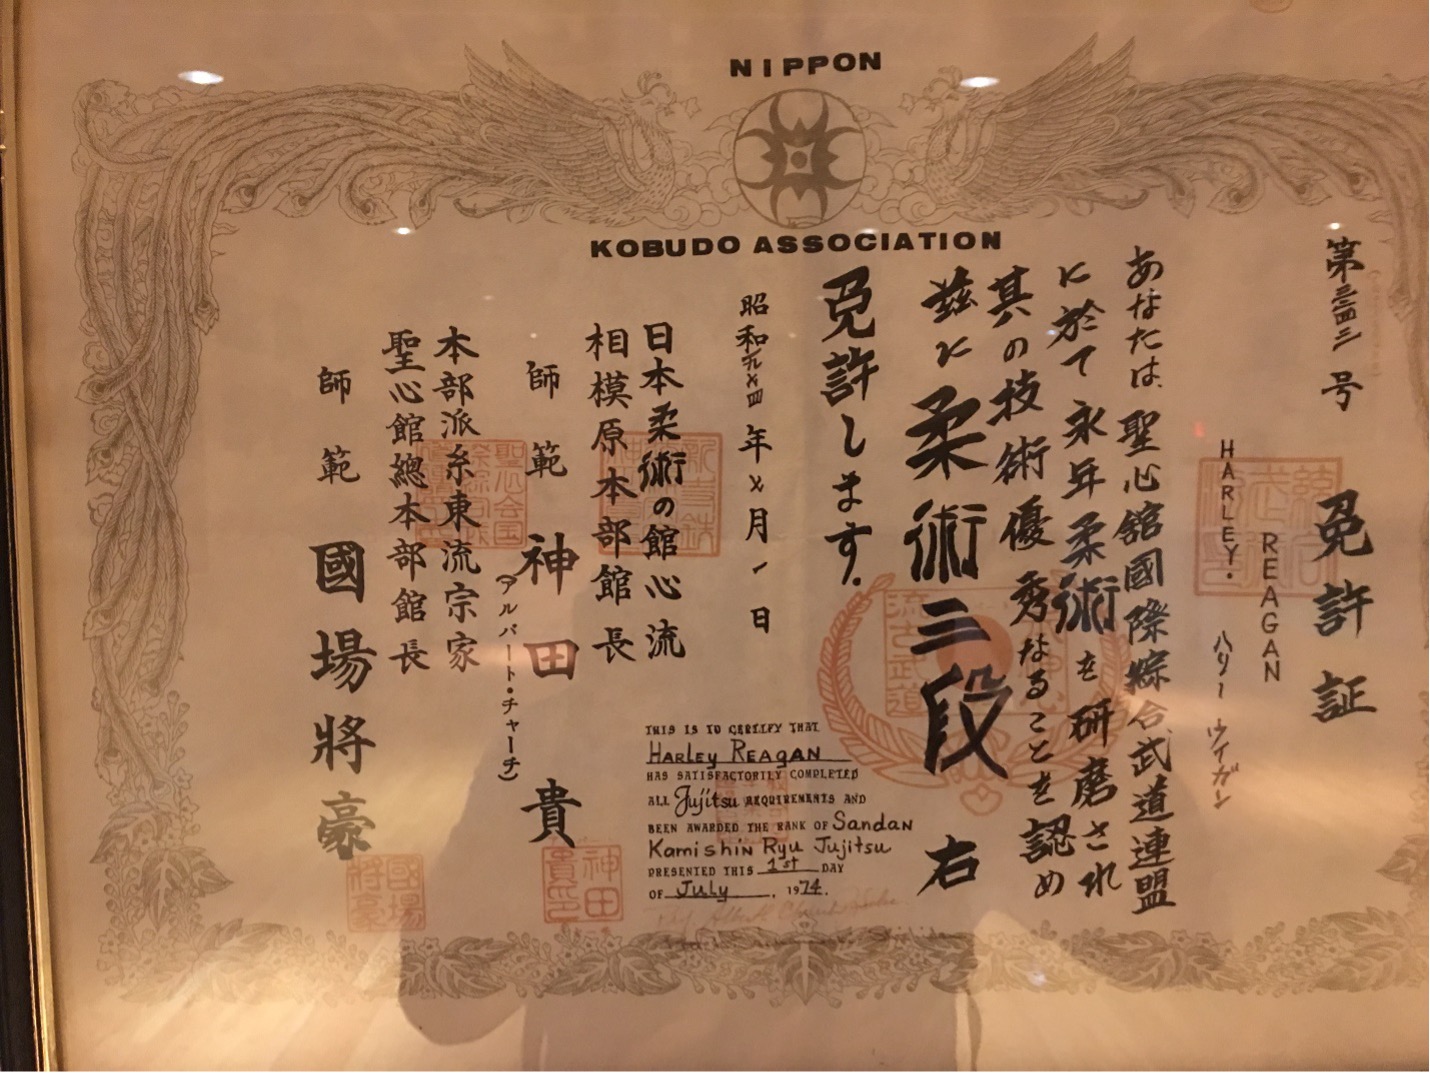 NIPPON
KOBUDO ASSOCIATION
免許証
第三三四三号
HARLEY.
REAGAN
ハリー ウイガン
あなたは聖心舘國際綜合武道連盟
に於て永年柔術を研磨され
其の技術優秀なることを認め
茲に柔術三段右
免許します.
昭和九七四年七月一日
日本柔術の館心流
相模原本部館長
師範 神田 貴
(アルバート・チャーチ)
本部派糸東流宗家
聖心館總本部館長
師範 國場將豪
THIS IS TO CERTIFY THAT
HARLEY REAGAN
HAS SATISFACTORILY COMPLETED
ALL Jujitsu REQUIREMENTS AND
BEEN AWARDED THE RANK OF Sandan
Kamishin Ryu Jujitsu
PRESENTED THIS 1st DAY
OF July, 1974.
神田
貴印
國場
將豪